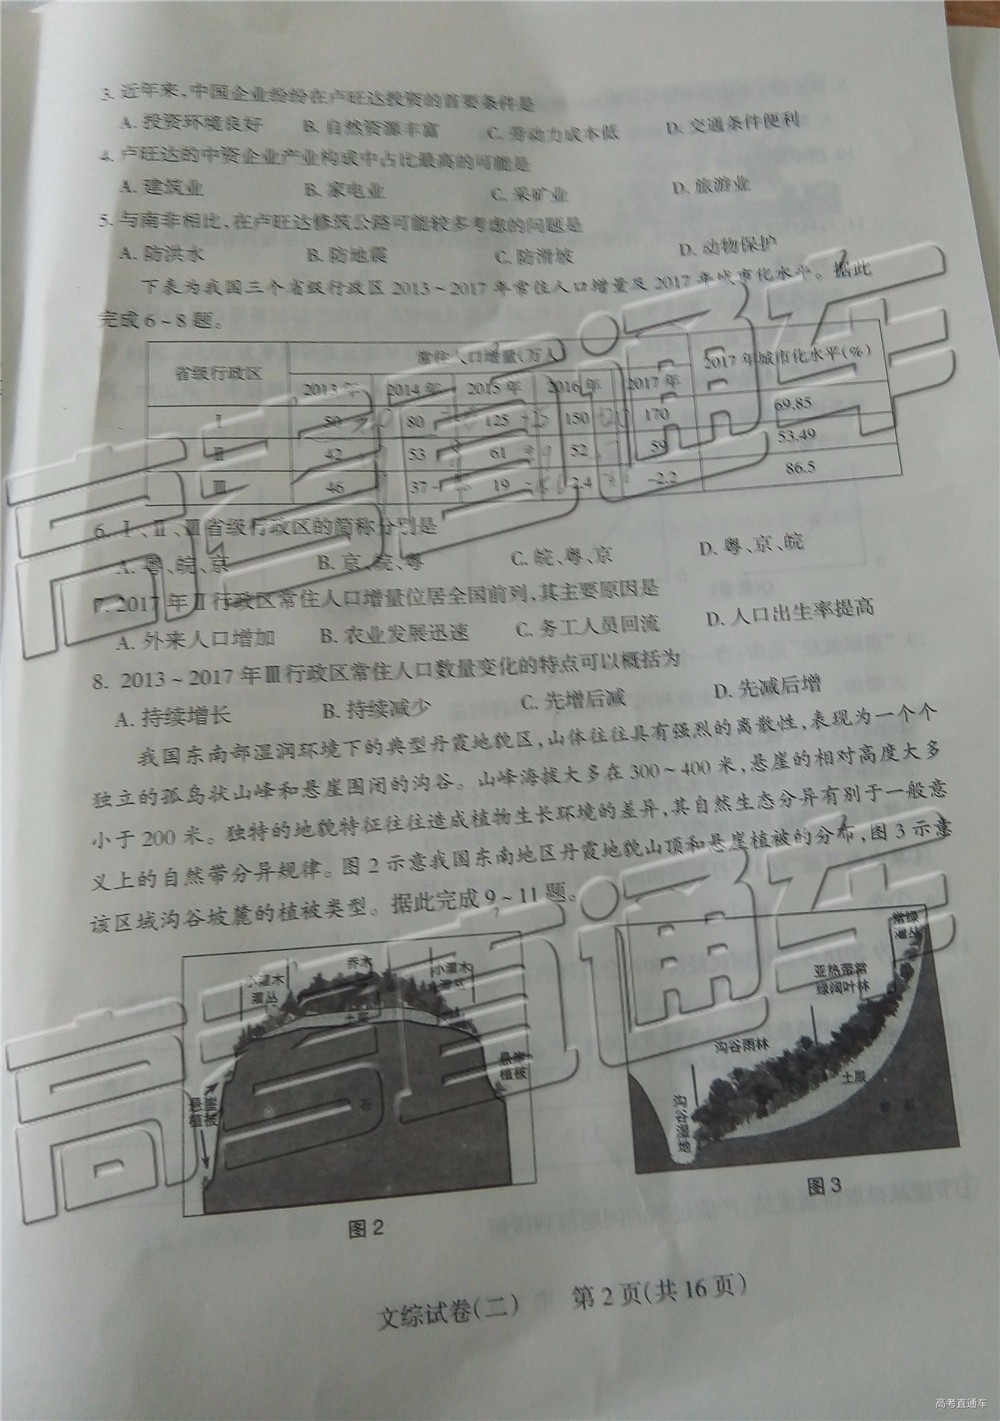 3. 近年来,中国企业纷纷在卢旺达投资的首要条件是
A. 投资环境良好 B. 自然资源丰富 C. 劳动力成本低 D. 交通条件便利
4. 卢旺达的中资企业产业构成中占比最高的可能是
A. 建筑业 B. 家电业 C. 采矿业 D. 旅游业
5. 与南非相比,在卢旺达修筑公路可能较多考虑的问题是
A. 防洪水 B. 防地震 C. 防滑坡 D. 动物保护
下表为我国三个省级行政区2013~2017年常住人口增量及2017年城市化水平。据此
完成6~8题。
省级行政区 常住人口增量(万人) 2017年城市化水平(%)
2013年 2014年 2015年 2016年 2017年
Ⅰ 50 80 125 150 170 69.85
Ⅱ 42 53 61 52 59 53.49
Ⅲ 46 37 19 2.4 -2.2 86.5
6. Ⅰ、Ⅱ、Ⅲ省级行政区的简称分别是
A. 粤、皖、京 B. 京、皖、粤 C. 皖、粤、京 D. 粤、京、皖
7. 2017年Ⅱ行政区常住人口增量位居全国前列,其主要原因是
A. 外来人口增加 B. 农业发展迅速 C. 务工人员回流 D. 人口出生率提高
8. 2013~2017年Ⅲ行政区常住人口数量变化的特点可以概括为
A. 持续增长 B. 持续减少 C. 先增后减 D. 先减后增
我国东南部湿润环境下的典型丹霞地貌区,山体往往具有强烈的离散性,表现为一个个
独立的孤岛状山峰和悬崖围闭的沟谷。山峰海拔大多在300~400米,悬崖的相对高度大多
小于200米。独特的地貌特征往往造成植物生长环境的差异,其自然生态分异有别于一般意
义上的自然带分异规律。图2示意我国东南地区丹霞地貌山顶和悬崖植被的分布,图3示意
该区域沟谷坡麓的植被类型。据此完成9~11题。
小灌木
灌丛
乔木
小灌木
灌丛
土层
悬崖
植被
悬崖
植被
石
图2
常绿
灌丛
亚热带常
绿阔叶林
沟谷雨林
土层
沟谷湿地
图3
文综试卷(二) 第2页(共16页)
高考直通车
高考直通车
高考直通车